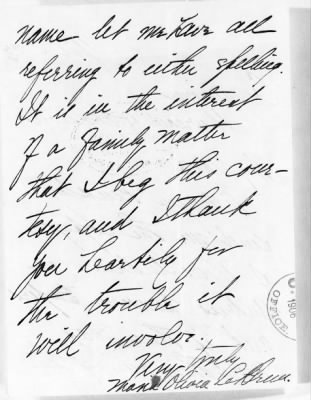 name let me have all
referring to either spelling.
It is in the interest
of a family matter
that I beg this cour-
tesy, and I thank
you heartily for
the trouble it
will involve.
Very truly
Olivia
1906
OFFICE